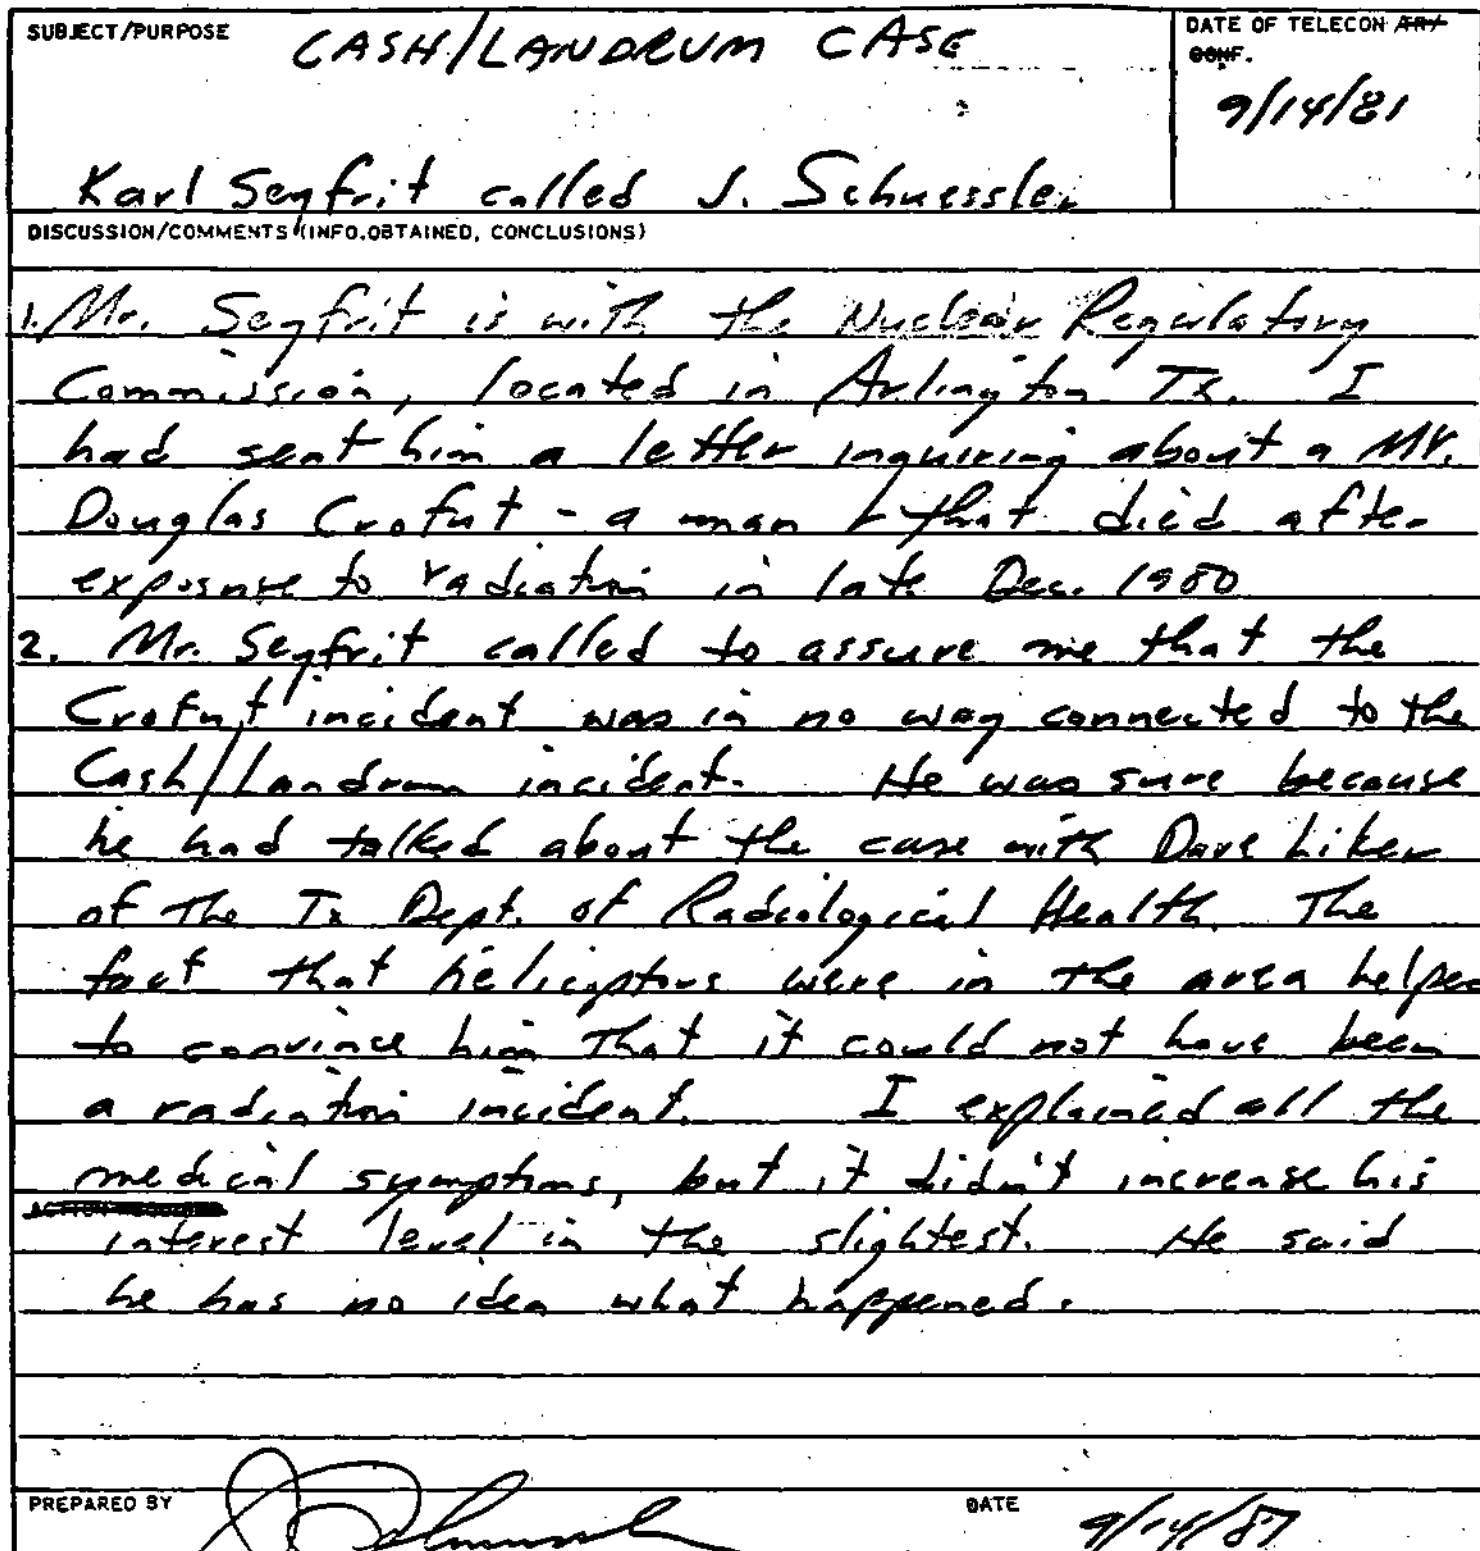 SUBJECT/PURPOSE CASH/LANDRUM CASE
DATE OF TELECON
CONF.
9/14/81
Karl Seyfrit called J. Schuessler
DISCUSSION/COMMENTS (INFO.OBTAINED, CONCLUSIONS)
1. Mr. Seyfrit is with the Nuclear Regulatory
Commission, located in Arlington Tx. I
had sent him a letter inquiring about a Mr.
Douglas Crofut - a man that died after
exposure to radiation in late Dec. 1980
2. Mr. Seyfrit called to assure me that the
Crofut incident was in no way connected to the
Cash/Landrum incident. He was sure because
he had talked about the case with Dave Liker
of The Tx Dept. of Radiological Health. The
fact that helicopters were in the area helped
to convince him that it could not have been
a radiation incident. I explained all the
medical symptoms, but it didn't increase his
interest level in the slightest. He said
he has no idea what happened.
PREPARED BY
DATE 9/14/81